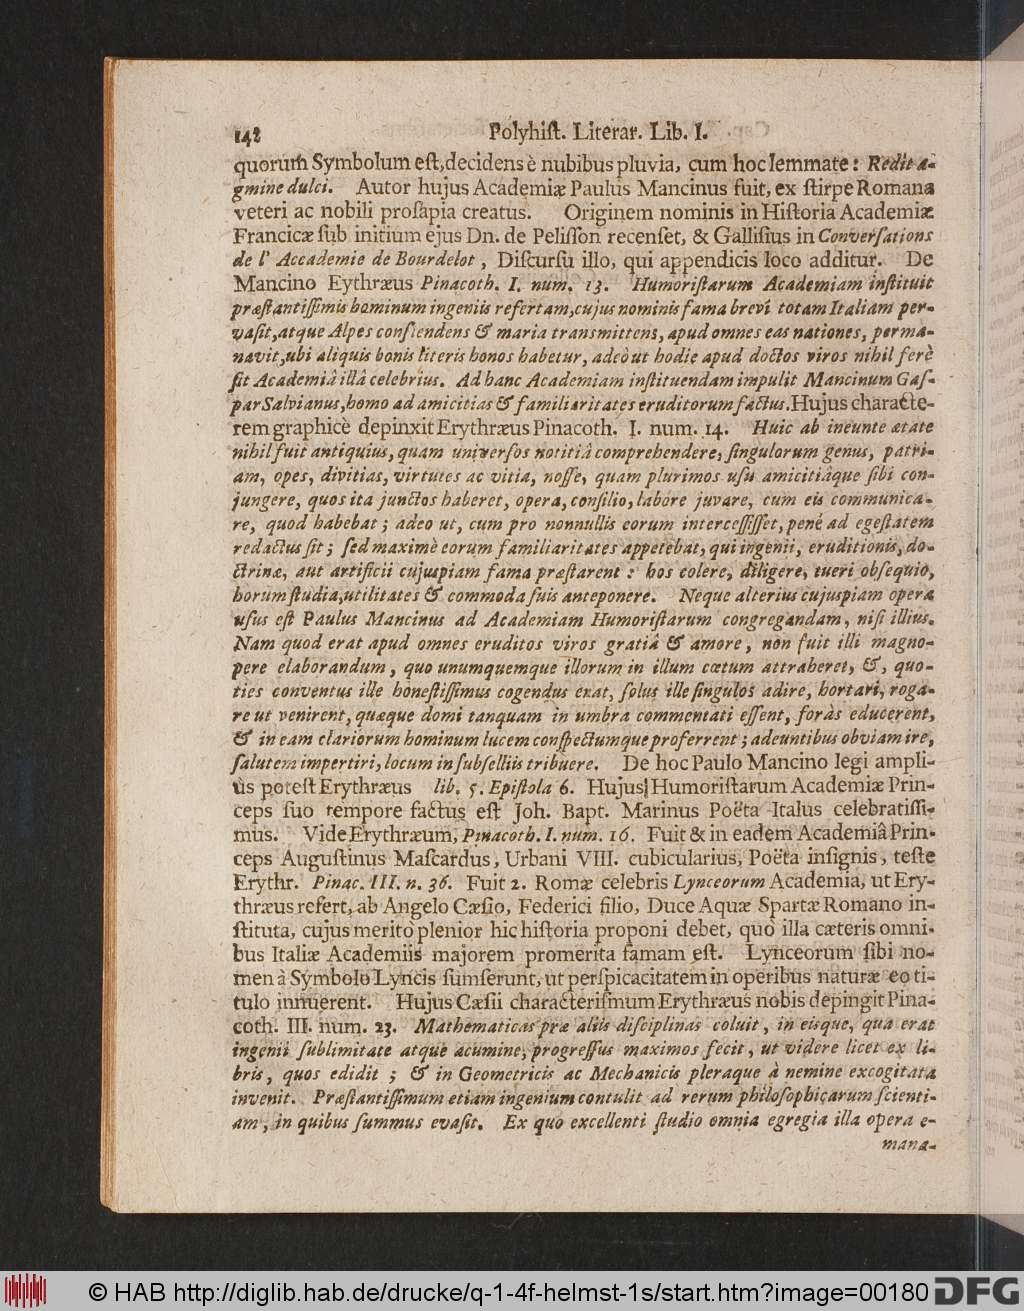 142 Polyhist. Literar. Lib. I.
quorum Symbolum est, decidens è nubibus pluvia, cum hoc lemmate: Redit a-
gmine dulci. Autor hujus Academiæ Paulus Mancinus fuit, ex stirpe Romana
veteri ac nobili prosapia creatus. Originem nominis in Historia Academiæ
Francicæ sub initium ejus Dn. de Pelisson recenset, & Gallisius in Conversations
de l' Accademie de Bourdelot, Discursu illo, qui appendicis loco additur. De
Mancino Eythræus Pinacoth. I. num. 13. Humoristarum Academiam instituit
præstantissimis hominum ingeniis refertam, cujus nominis fama brevi totam Italiam per-
vasit, atque Alpes consiendens & maria transmittens, apud omnes eas nationes, perma-
navit, ubi aliquis bonis literis honos habetur, adeò ut hodie apud doctos viros nihil ferè
sit Academiâ illâ celebrius. Ad hanc Academiam instituendam impulit Mancinum Gas-
par Salvianus, homo ad amicitias & familiaritates eruditorum factus. Hujus characte-
rem graphicè depinxit Erythræus Pinacoth. I. num. 14. Huic ab ineunte ætate
nihil fuit antiquius, quam universos notitiâ comprehendere, singulorum genus, patri-
am, opes, divitias, virtutes ac vitia, nosse, quam plurimos usu amicitiâque sibi con-
jungere, quos ita junctos haberet, opera, consilio, labore juvare, cum eis communica-
re, quod habebat; adeo ut, cum pro nonnullis eorum intercessisset, pené ad egestatem
redactus sit; sed maximè eorum familiaritates appetebat, qui ingenii, eruditionis, do-
ctrinæ, aut artificii cujuspiam fama præstarent: hos colere, diligere, tueri obsequio,
horum studia, utilitates & commoda suis anteponere. Neque alterius cujuspiam opera
usus est Paulus Mancinus ad Academiam Humoristarum congregandam, nisi illius.
Nam quod erat apud omnes eruditos viros gratiâ & amore, non fuit illi magno-
pere elaborandum, quo unumquemque illorum in illum cœtum attraheret, &, quo-
ties conventus ille honestissimus cogendus erat, solus ille singulos adire, hortari, roga-
re ut venirent, quæque domi tanquam in umbra commentati essent, foràs educerent,
& in eam clariorum hominum lucem conspectumque proferrent; adeuntibus obviam ire,
salutem impertiri, locum in subselliis tribuere. De hoc Paulo Mancino legi ampli-
ùs potest Erythræus lib. 5. Epistola 6. Hujus Humoristarum Academiæ Prin-
ceps suo tempore factus est Joh. Bapt. Marinus Poëta Italus celebratissi-
mus. Vide Erythræum, Pinacoth. I. num. 16. Fuit & in eadem Academiâ Prin-
ceps Augustinus Mascardus, Urbani VIII. cubicularius, Poëta insignis, teste
Erythr. Pinac. III. n. 36. Fuit 2. Romæ celebris Lynceorum Academia, ut Ery-
thræus refert, ab Angelo Cæsio, Federici filio, Duce Aquæ Spartæ Romano in-
stituta, cujus meritò plenior hic historia proponi debet, quò illa cæteris omni-
bus Italiæ Academiis majorem promerita famam est. Lynceorum sibi no-
men à Symbolo Lyncis sumserunt, ut perspicacitatem in operibus naturæ eo ti-
tulo innuerent. Hujus Cæsii characterismum Erythræus nobis depingit Pina-
coth. III. num. 23. Mathematicas præ aliis disciplinas coluit, in eisque, qua erat
ingenii sublimitate atque acumine, progressus maximos fecit, ut videre licet ex li-
bris, quos edidit; & in Geometricis ac Mechanicis pleraque à nemine excogitata
invenit. Præstantissimum etiam ingenium contulit ad rerum philosophicarum scienti-
am, in quibus summus evasit. Ex quo excellenti studio omnia egregia illa opera e-
mana-
© HAB http://diglib.hab.de/drucke/q-1-4f-helmst-1s/start.htm?image=00180 DFG